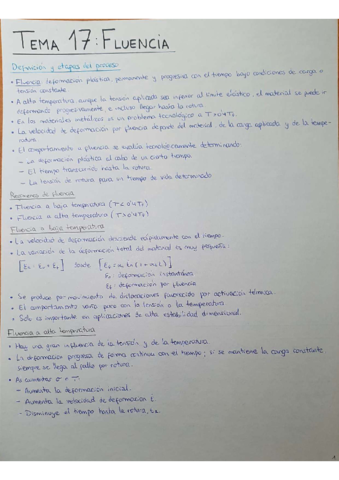 TEMA 17: FLUENCIA
Definición y etapas del proceso
• Fluencia: deformación plástica, permanente y progresiva con el tiempo bajo condiciones de carga o
tensión constante.
• A alta temperatura aunque la tensión aplicada no supere el límite elástico, el material se puede ir
deformando progresivamente e incluso llegar hasta la rotura.
• En los materiales metálicos es un problema tecnológico a T > 0'4Tf.
• La velocidad de deformación por fluencia depende del material, de la carga aplicada y de la tempe-
ratura.
• El comportamiento a fluencia se evalúa tecnológicamente determinando:
– La deformación plástica al cabo de un cierto tiempo.
– El tiempo transcurrido hasta la rotura.
– La tensión de rotura para un tiempo de vida determinado.
Regímenes de fluencia
• Fluencia a baja temperatura (T < 0'4Tf)
• Fluencia a alta temperatura (T > 0'4Tf)
Fluencia a baja temperatura
• La velocidad de deformación desciende rápidamente con el tiempo.
• La variación de la deformación total del material es muy pequeña:
• Se produce por movimiento de dislocaciones favorecido por activación térmica.
• El comportamiento varía poco con la tensión o la temperatura.
• Solo es importante en aplicaciones de alta estabilidad dimensional.
Fluencia a alta temperatura
• Hay una gran influencia de la tensión y de la temperatura.
• La deformación progresa de forma continua con el tiempo; si se mantiene la carga constante
siempre se llega al fallo por rotura.
• Al aumentar σ o T:
– Aumenta la deformación inicial.
– Aumenta la velocidad de deformación
– Disminuye el tiempo hasta la rotura,